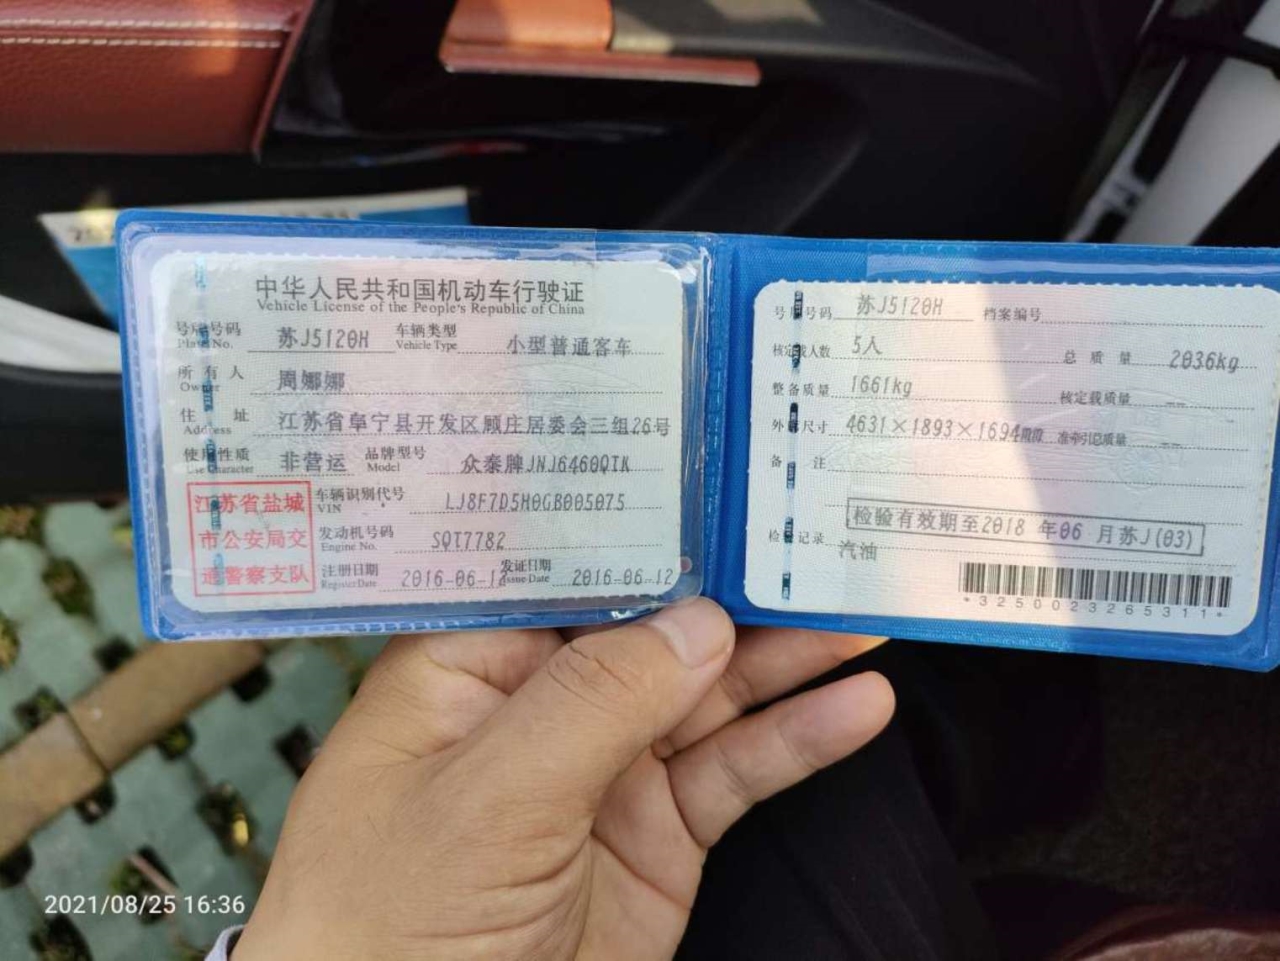 中华人民共和国机动车行驶证
Vehicle License of the People's Republic of China
号牌号码 苏J5120H 车辆类型 小型普通客车
Plate No. Vehicle Type
所有人 周娜娜
Owner
住址 江苏省阜宁县开发区顾庄居委会三组26号
Address
使用性质 非营运 品牌型号 众泰牌JNJ6460QTK
Use Character Model
江苏省盐城
市公安局交
通警察支队
车辆识别代号 LJ8F7D5H0GB005075
VIN
发动机号码 SQT7782
Engine No.
注册日期 2016-06-12 发证日期 2016-06-12
Register Date Issue Date
号牌号码 苏J5120H 档案编号
核定载人数 5人 总质量 2036kg
整备质量 1661kg 核定载质量 --
外廓尺寸 4631×1893×1694mm 准牵引总质量 --
备注
检验有效期至2018年06月苏J(03)
检验记录
汽油
*3250023265311*
2021/08/25 16:36